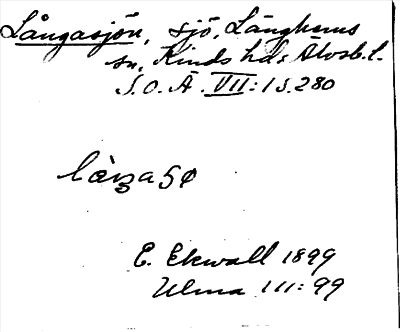 Långasjön, sjö, Länghems
sn, Kinds hd, Älvsb. l.
S.O.Ä. VII:1 s. 280
E. Ekwall 1899
Ulma 111:99